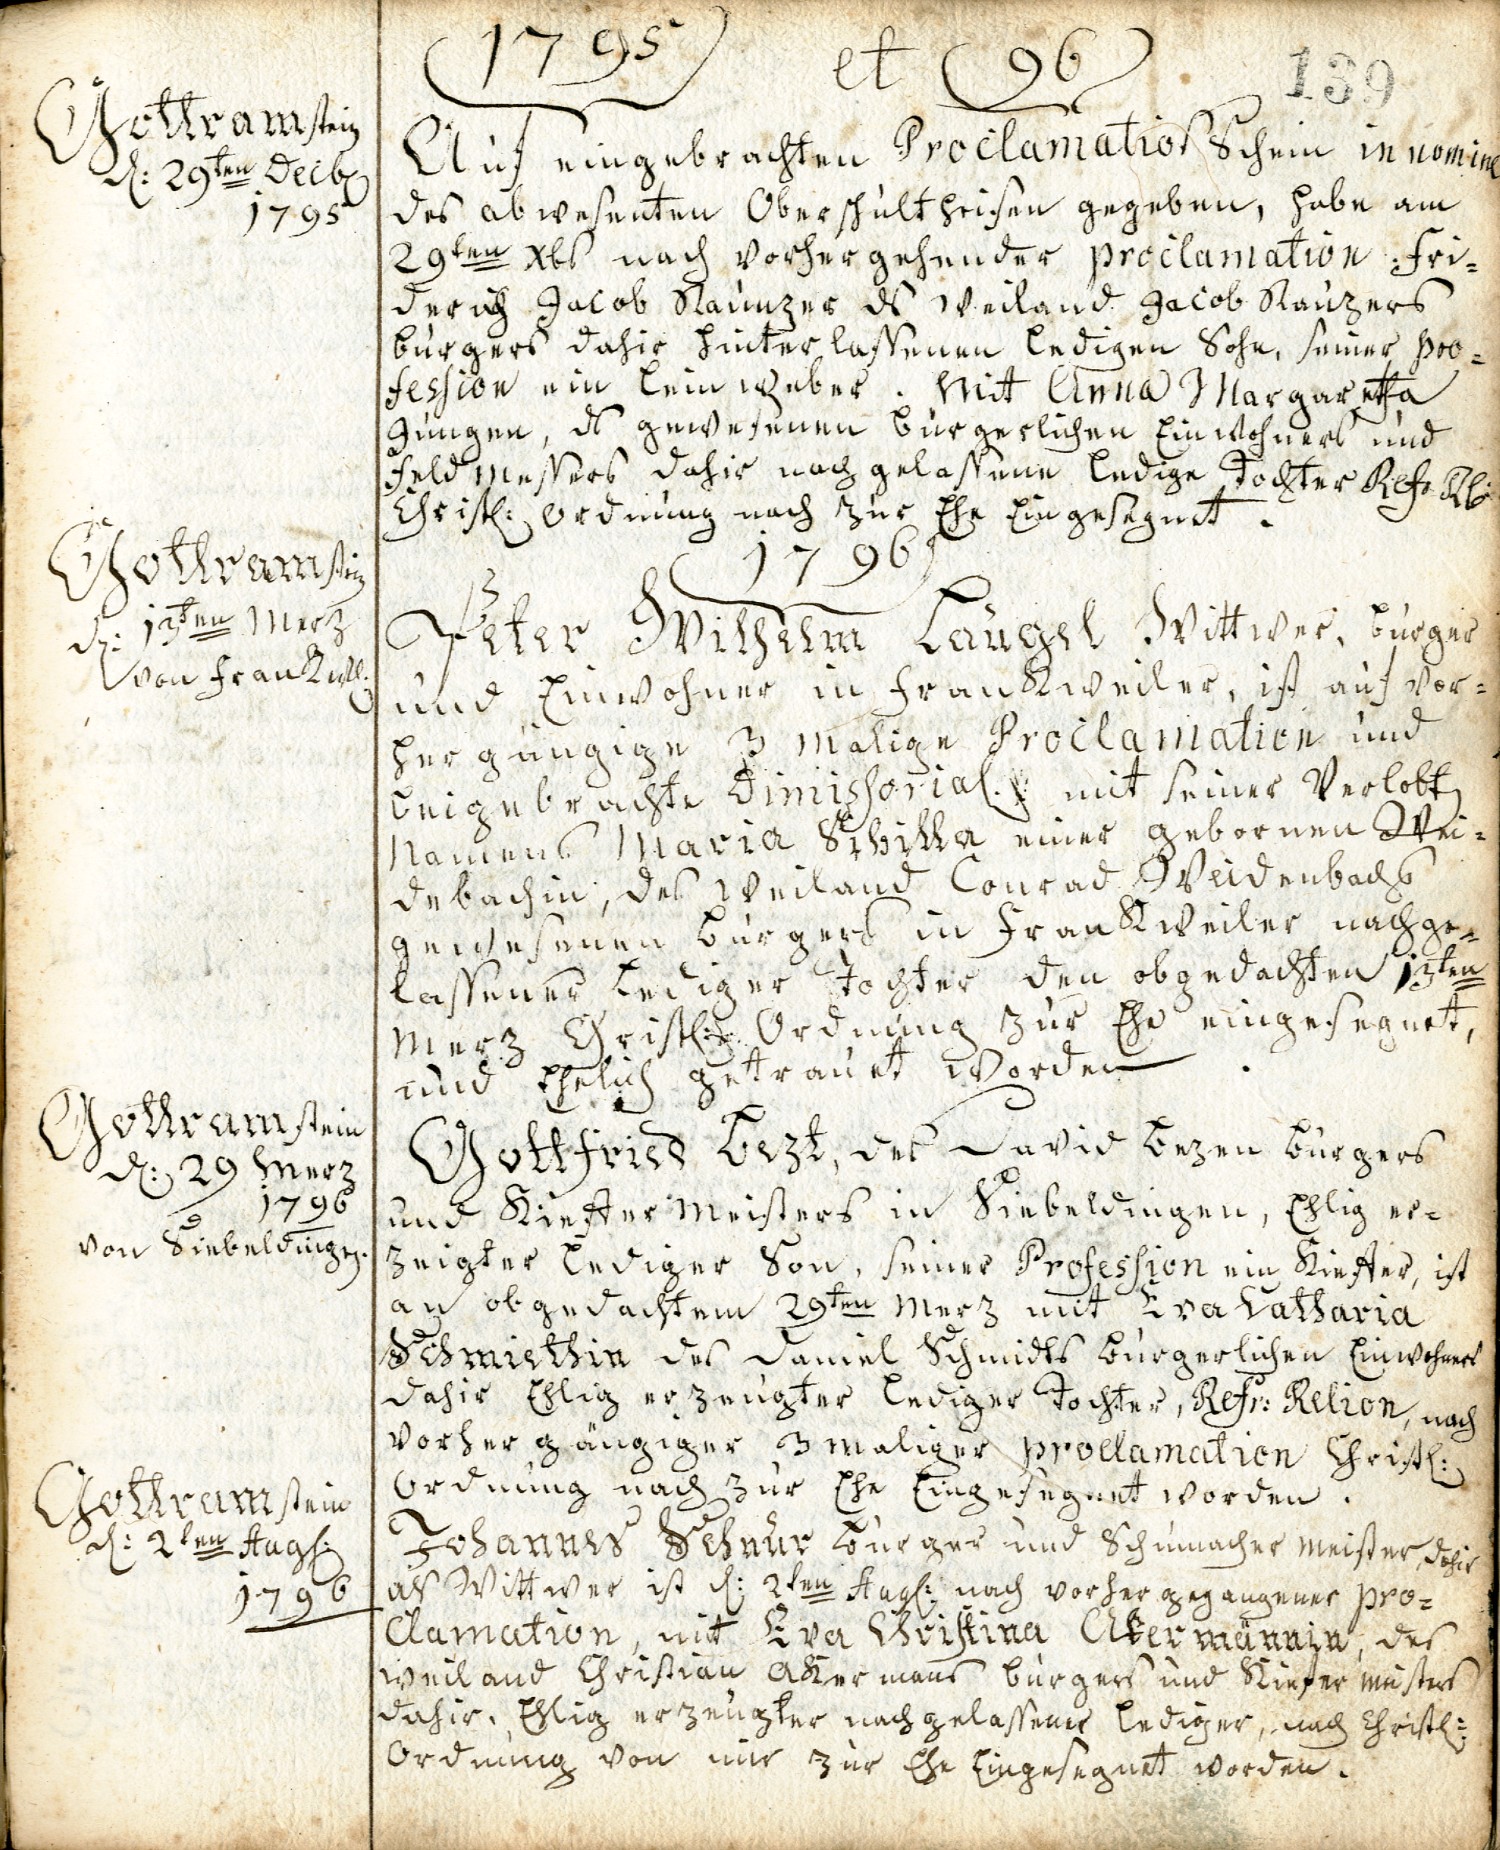 1795 et 96
139
Gottramstein
d: 29ten Decbr
1795
Auf eingebrachten Proclamations Schein in nomine
des abwesenten Oberschultheisen gegeben, habe am
29ten Xbs nach vorhergehender proclamation Fri-
derich Jacob Kaunzer ds weiland Jacob Kauzers
burgers dahir hinterlassenen ledigen Sohn, seiner pro-
fession ein leinweber. Mit Anna Margaretha
Jungen, ds gewesenen bürgerlichen Einwohners und
Feldmessers dahir nachgelassene ledige Tochter Refr Rl:
Christl: ordnung nach zur Ehe Eingesegnet.
1796
Gothramstein
d: 13ten Merz
von Frankwl:
Peter Wilhelm Laugel Wittwer, burger
und Einwohner in Frankweiler, ist auf vor-
hergängige 3 malige Proclamation und
beigebrachte Dimissorial. mit seiner Verlobt
Namens Maria Sibilla einer gebornen Wei-
debachin, des weiland Conrad Weidenbachs
gewesenen burgers in Frankweiler nachge-
lassener Lediger Tochter den obgedachten 13ten
Merz Christl: Ordnung zur Ehe eingesegnet,
und Ehelich getrauet worden.
Gottramstein
d: 29 Merz
1796
von Siebeldingen.
Gottfried Bezt, des David Bezen burgers
und Kieffer Meisters in Siebeldingen, Ehlig er-
zeigter lediger Son, seiner Profession ein Kieffer, ist
an obgedachtem 29ten Merz mit Eva Catharia
Schmiethin des Daniel Schmidts bürgerlichen Einwohners
dahir Ehlig erzeugter lediger Tochter, Refr: Relion, nach
vorhergängiger 3 maliger proclamation Christl:
ordnung nach zur Ehe Eingesegnet worden.
Gottramstein
d: 2ten Augs:
1796
Johannes Schnur bürger und Schumacher meister dahir
als Wittwer ist d: 2ten Augs: nach vorhergegangener pro-
Clamation, mit Eva Christina Akermännin, des
weiland Christian Akermans burgers und Kiefer meisters
dahir, Ehlig erzeugter nachgelassener lediger, nach Christl:
Ordnung von mir zur Ehe Eingesegnet worden.